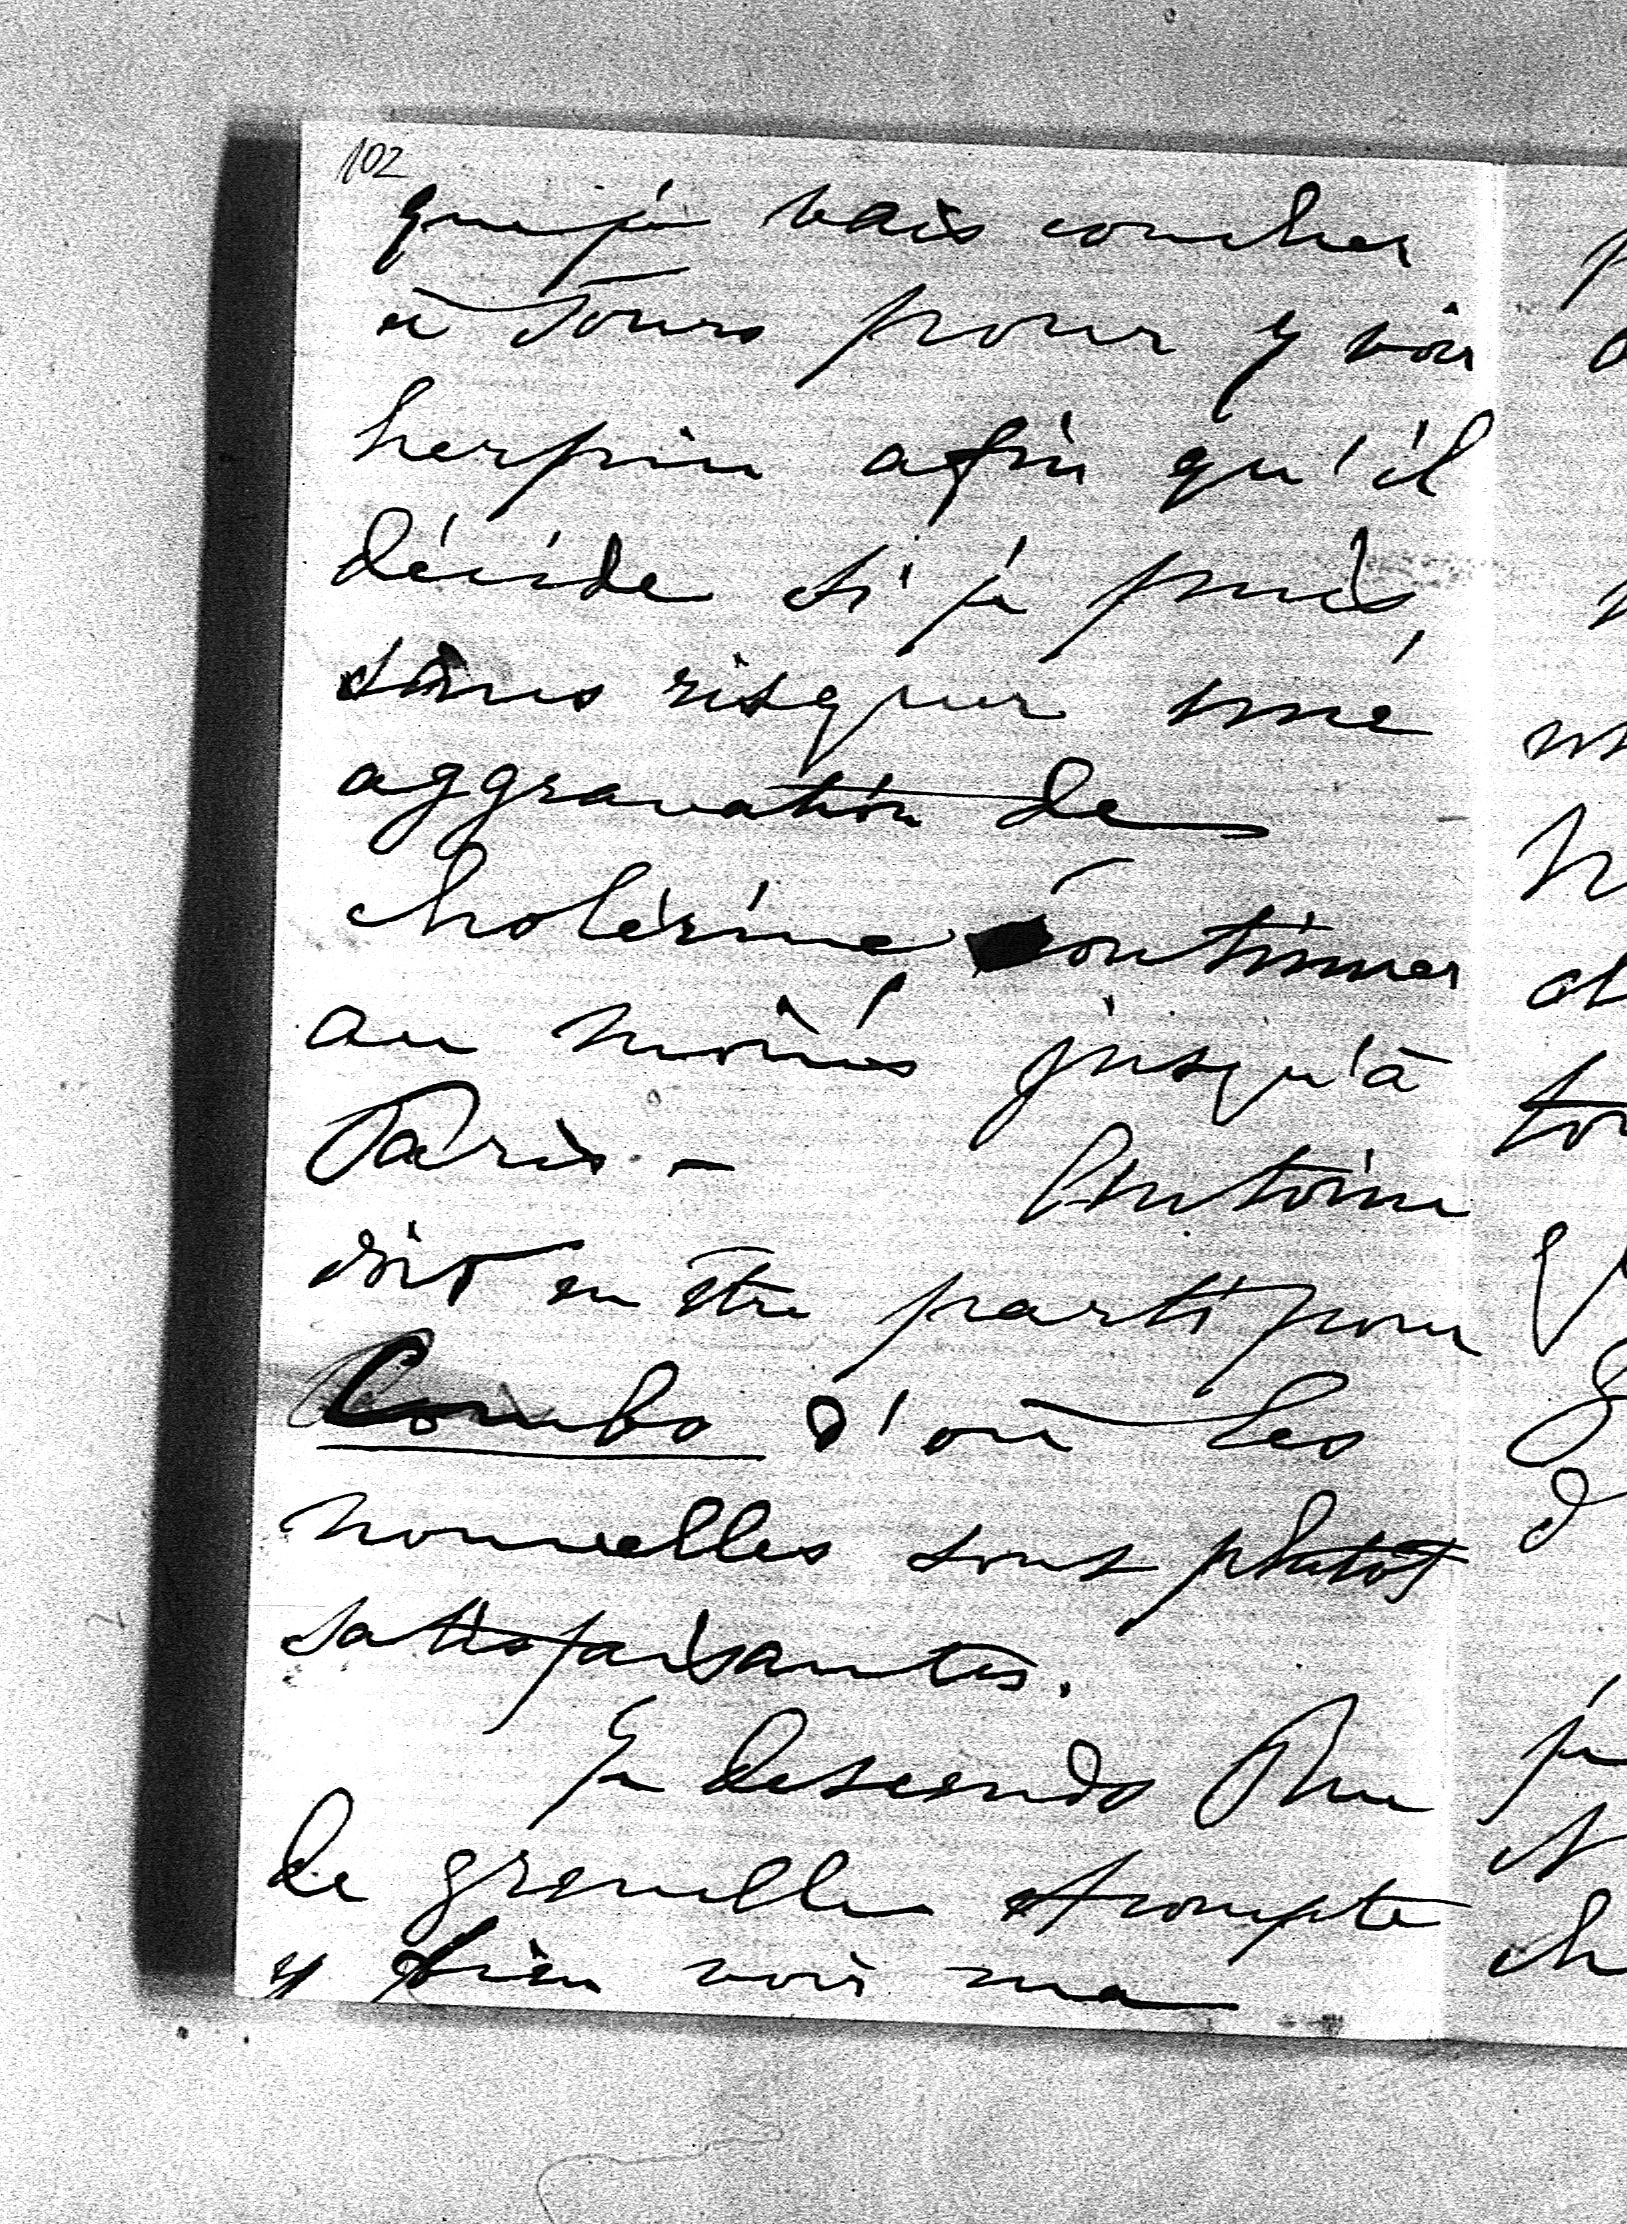 102
que je vais coucher
à Tours pour y voir
herpin afin qu'il
décide si je puis,
sans risquer une
aggravation de
cholérine, continuer
au moins jusqu'à
Paris. - Antoine
doit en être parti pour
Combs d'où les
nouvelles sont plutôt
satisfaisantes.
Je descends Rue
de grenelle et compte
y bien voir ma